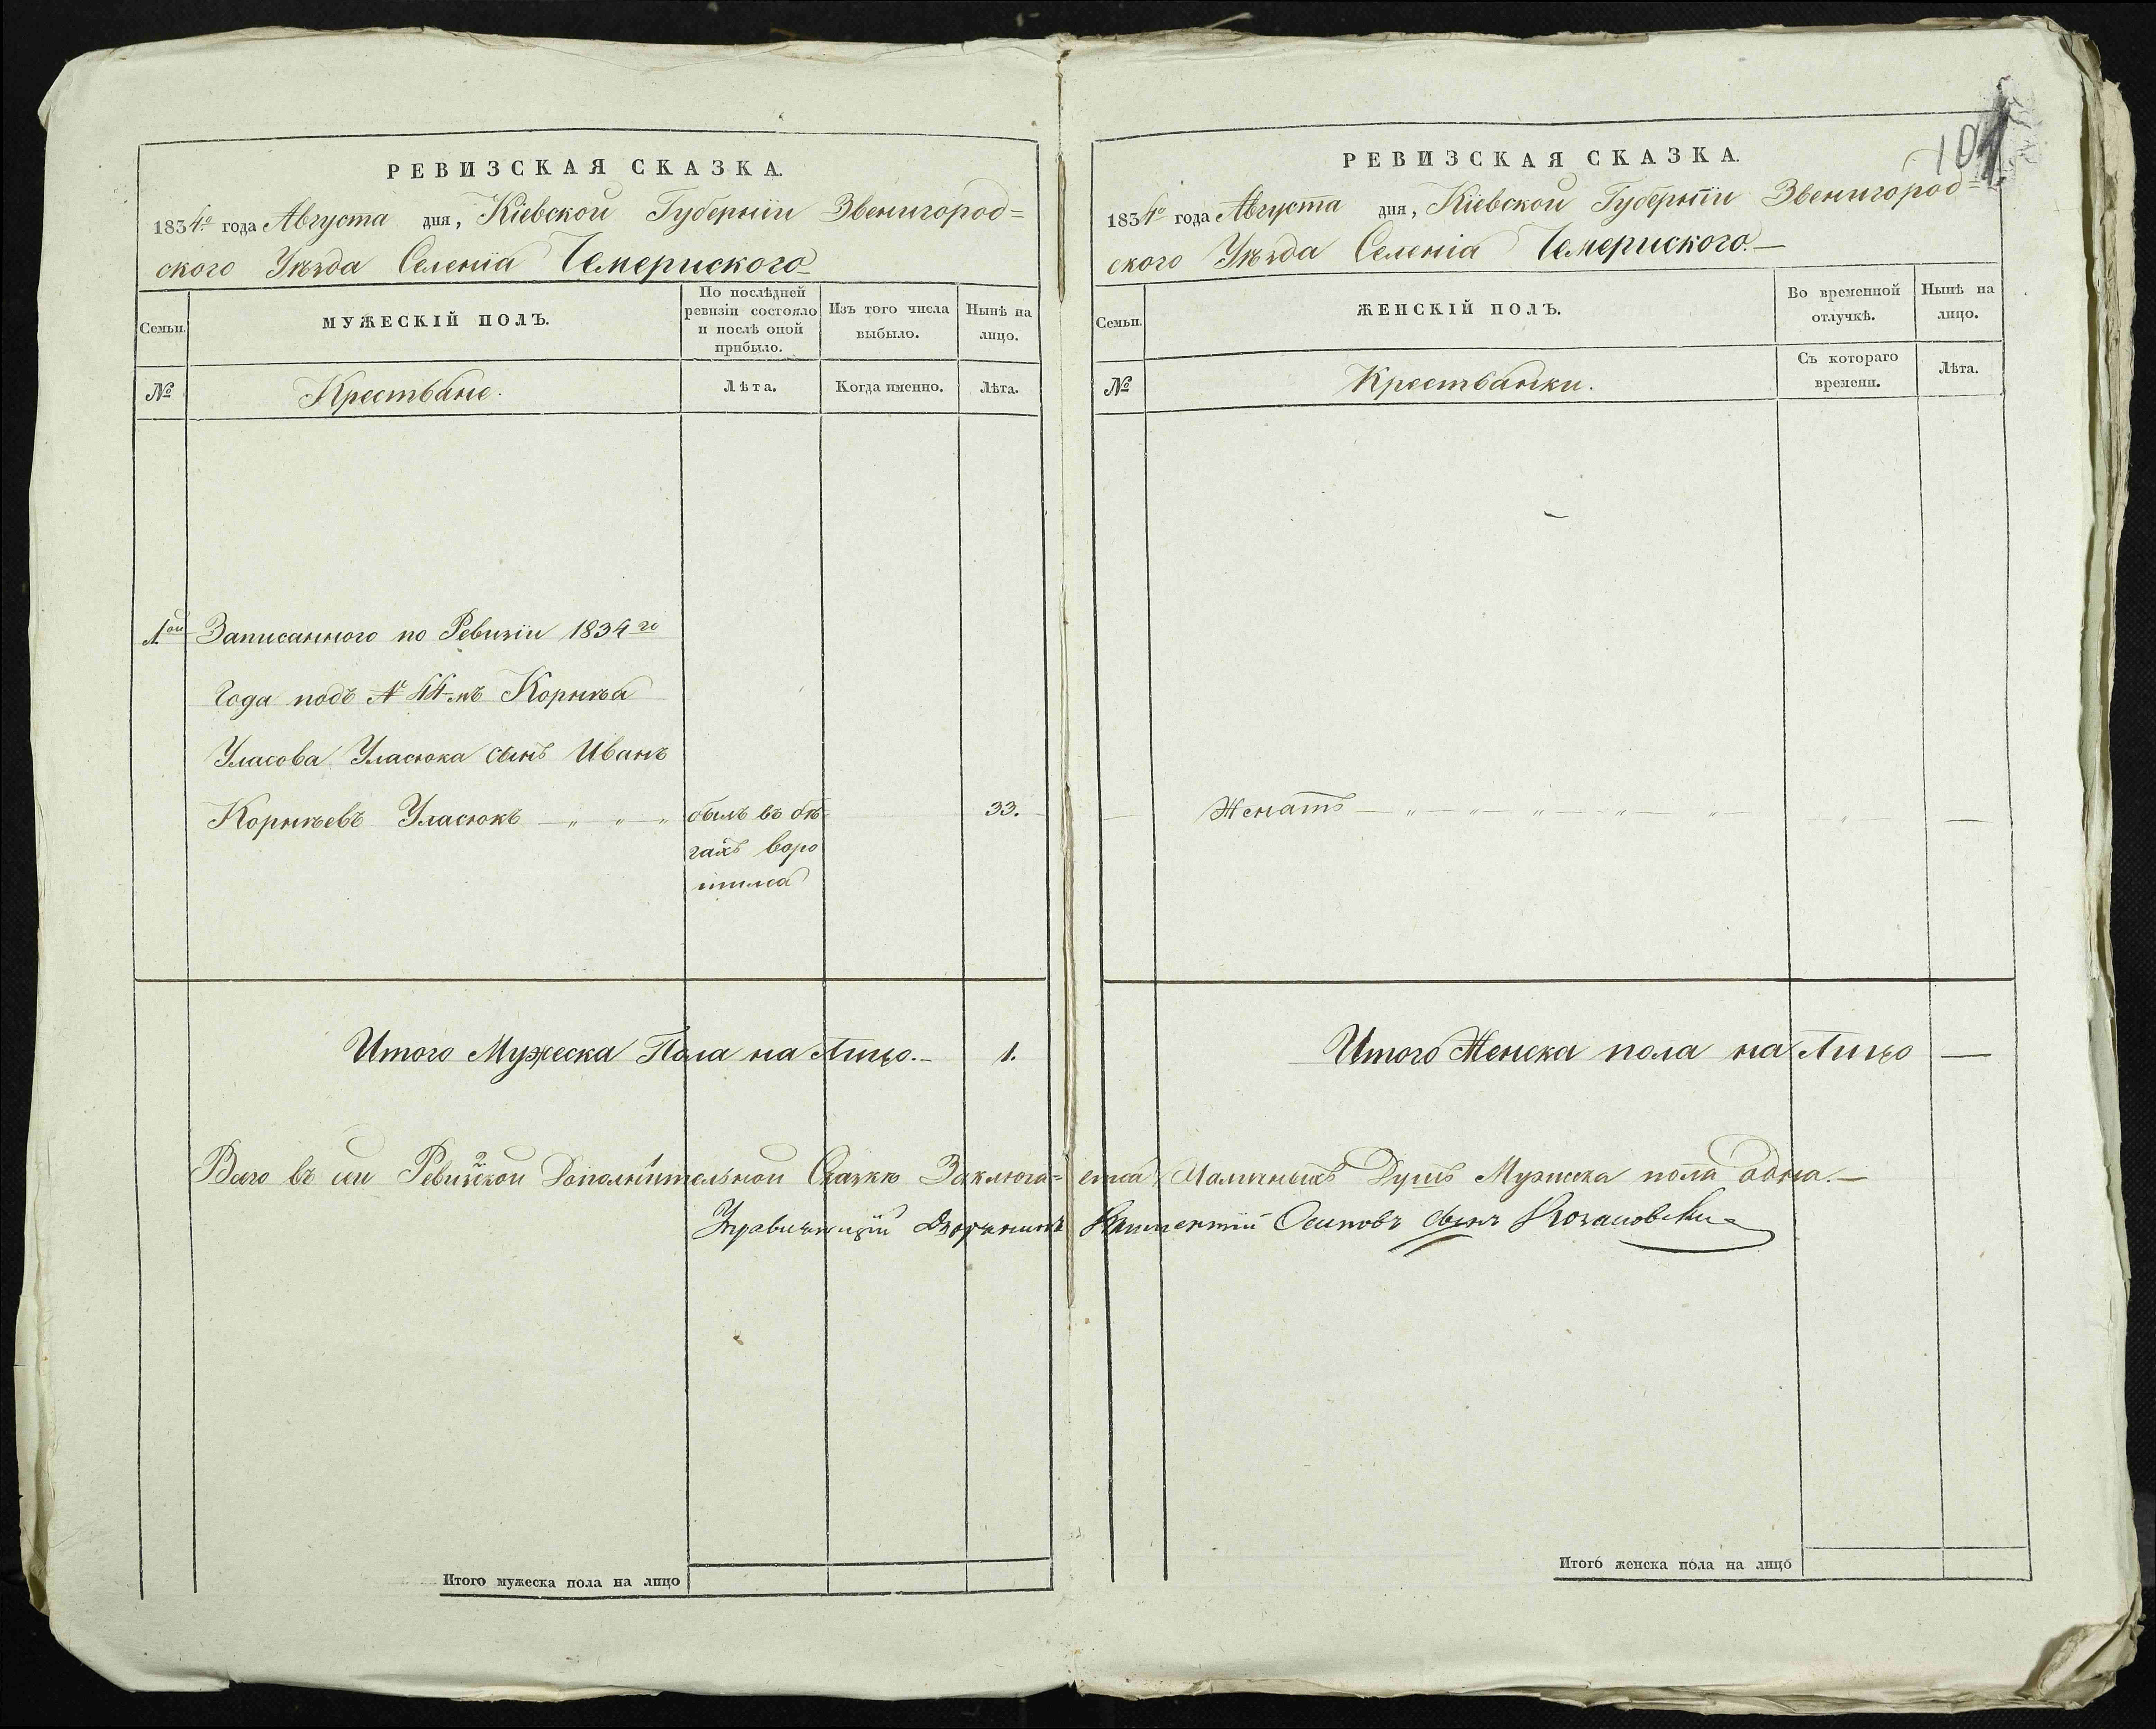 РЕВИЗСКАЯ СКАЗКА.
1834го года Августа дня, Кіевской Губерніи Звенигород=
ского Уѣзда Селенія Чемериского
Семьи.
МУЖЕСКІЙ ПОЛЪ.
По послѣдней ревизіи состояло и послѣ оной прибыло.
Изъ того числа выбыло.
Нынѣ на лицо.
№
Крестьяне.
Лѣта.
Когда именно.
Лѣта.
1.ой Записанного по Ревизіи 1834го
Года подъ № 44мъ Корнѣя
Уласова Уласюка сынъ Иванъ
Корнѣевъ Уласюкъ — „ — „ — „ былъ въ бѣ= 33.
гахъ воро
тился
Итого Мужеска Пола на Лицо.— 1.
Всего въ сей Ревизской Дополнительной Сказкѣ Заключа=
Управляющій Дворянинъ
Итого мужеска пола на лицо
104
РЕВИЗСКАЯ СКАЗКА.
1834го года Августа дня, Кіевской Губерніи Звенигород=
ского Уѣзда Селенія Чемериского.—
Семьи.
ЖЕНСКІЙ ПОЛЪ.
Во временной отлучкѣ.
Нынѣ на лицо.
№
Крестьянки.
Съ котораго времени.
Лѣта.
— Женатъ — „ — „ — „ — „ — „ — — „ — —
Итого Женска пола на Лицо —
ется Наличныхъ Душъ Мужеска пола одна.—
Осиповъ сынъ
Итого женска пола на лицо